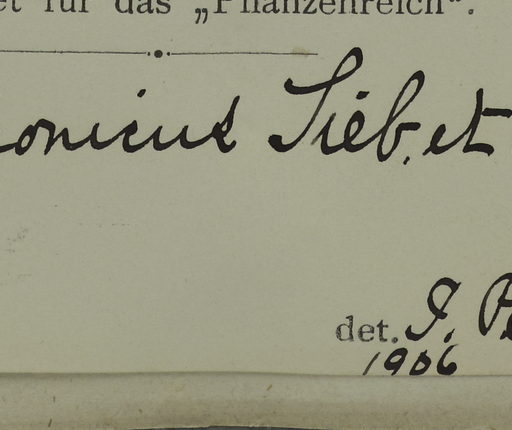 et für das „Pflanzenreich“.
onicus Sieb. et
det. J. Pe
1906